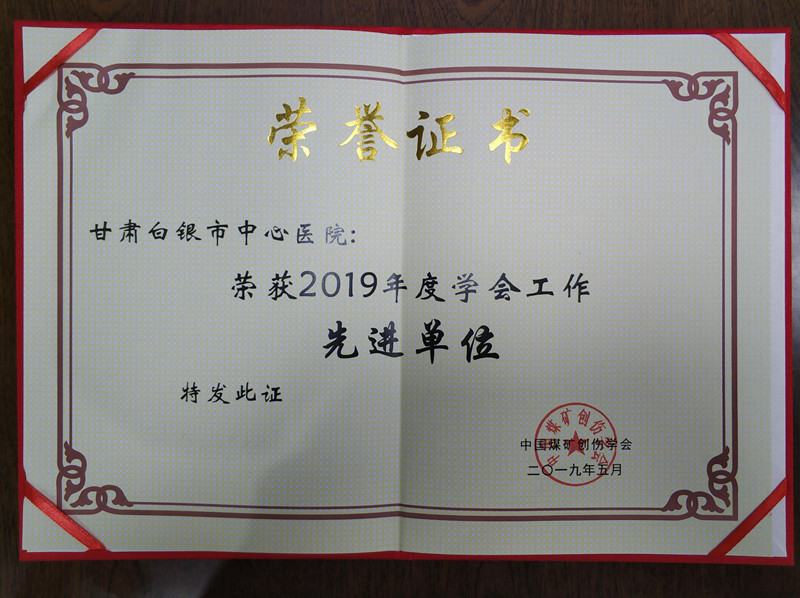 荣誉证书
甘肃白银市中心医院:
荣获2019年度学会工作
先进单位
特发此证
中国煤矿创伤学会
中国煤矿创伤学会
二〇一九年五月